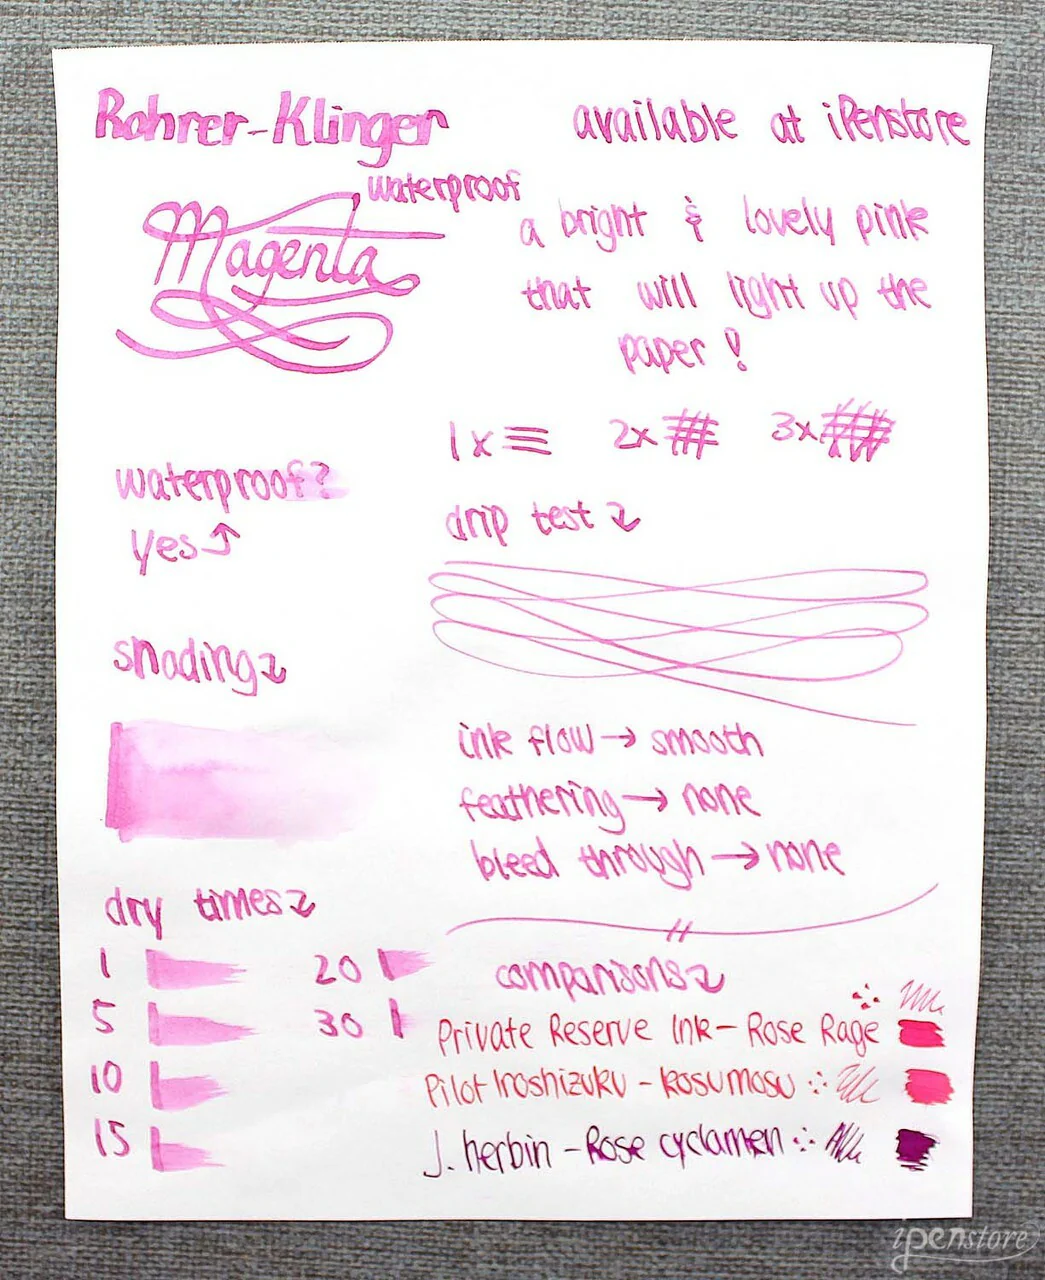 Rohrer-Klinger
available at iPenstore
waterproof
Magenta
a bright & lovely pink
that will light up the
paper!
1x 2x 3x
waterproof?
yes↑
drip test ↓
shading↓
ink flow → smooth
feathering → none
bleed through → none
dry times↓
1
5
10
15
20
30
comparisons↓
Private Reserve Ink - Rose Rage
Pilot Iroshizuku - kosumosu
J. herbin - Rose cyclamen
ipenstore